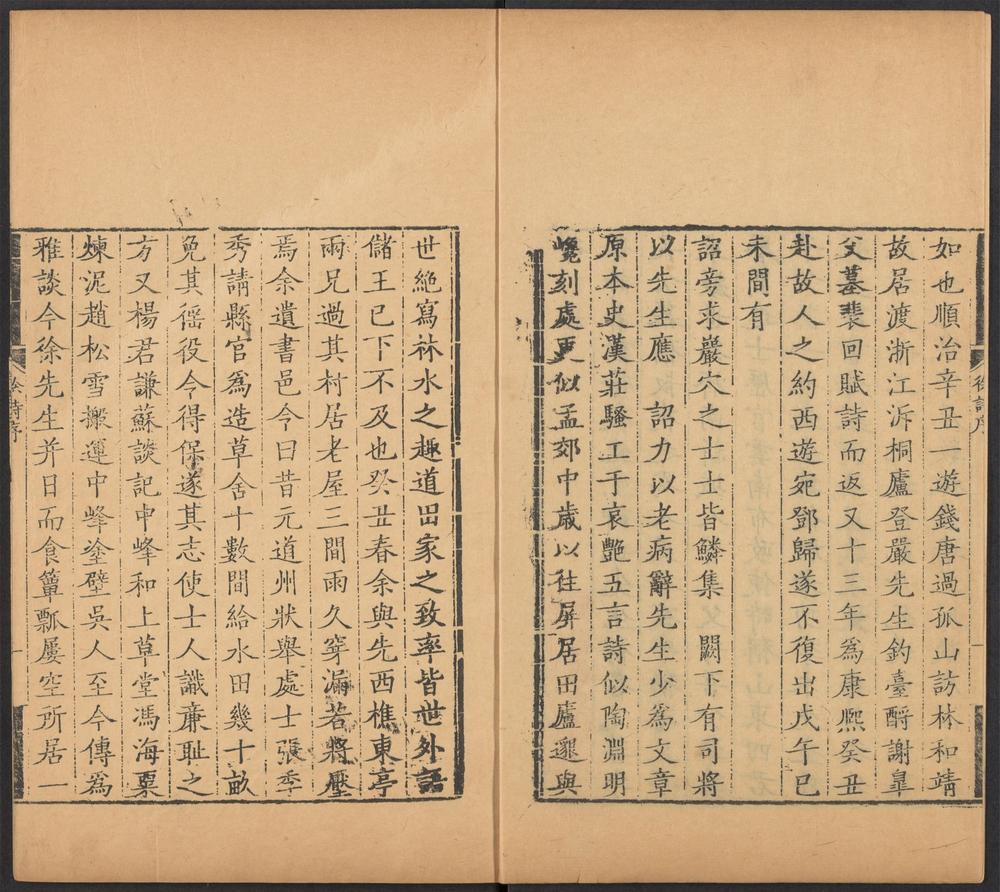 如也順治辛丑一遊錢唐過孤山訪林和靖
故居渡浙江泝桐廬登嚴先生釣臺酹謝皐
父墓裴回賦詩而返又十三年為康熙癸丑
赴故人之約西遊宛鄧歸遂不復出戊午己
未間有
詔旁求巖穴之士士皆鱗集 闕下有司將
以先生應 詔力以老病辭先生少為文章
原本史漢莊騷工于哀艷五言詩似陶淵明
巉刻處更似孟郊中歲以往屏居田廬邈與
世絕寫林水之趣道田家之致率皆世外語
儲王已下不及也癸丑春余與先西樵東亭
兩兄過其村居老屋三間雨久穿漏若將壓
焉余遺書邑令曰昔元道州狀舉處士張季
秀請縣官為造草舍十數間給水田幾十畝
免其徭役令得保遂其志使士人識亷耻之
方又楊君謙蘇談記中峰和上草堂馮海粟
煉泥趙松雪搬運中峰塗壁吳人至今傳為
雅談今徐先生并日而食簞瓢屢空所居一
徐詩序